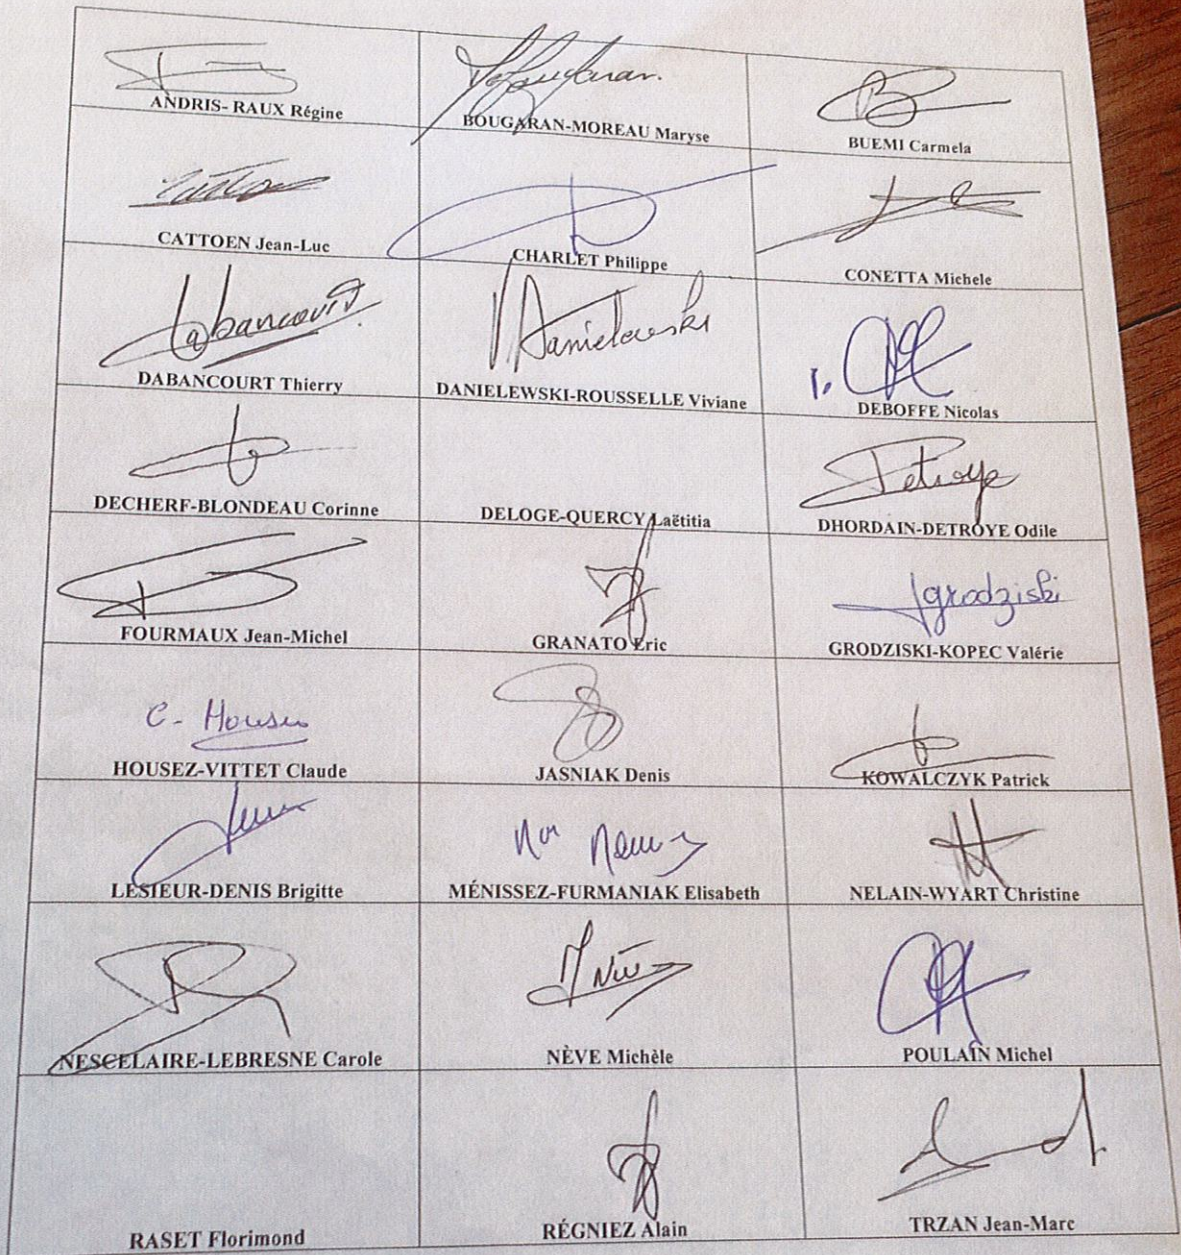 Bougaran.
ANDRIS- RAUX Régine
BOUGARAN-MOREAU Maryse
BUEMI Carmela
CATTOEN Jean-Luc
CHARLET Philippe
CONETTA Michele
Dabancourt
Danielewski
DABANCOURT Thierry
DANIELEWSKI-ROUSSELLE Viviane
DEBOFFE Nicolas
Detroye
DECHERF-BLONDEAU Corinne
DELOGE-QUERCY Laëtitia
DHORDAIN-DETROYE Odile
grodziski
FOURMAUX Jean-Michel
GRANATO Eric
GRODZISKI-KOPEC Valérie
C. Housez
HOUSEZ-VITTET Claude
JASNIAK Denis
KOWALCZYK Patrick
LESIEUR-DENIS Brigitte
MÉNISSEZ-FURMANIAK Elisabeth
NELAIN-WYART Christine
NESCELAIRE-LEBRESNE Carole
NÈVE Michèle
POULAIN Michel
RASET Florimond
RÉGNIEZ Alain
TRZAN Jean-Marc